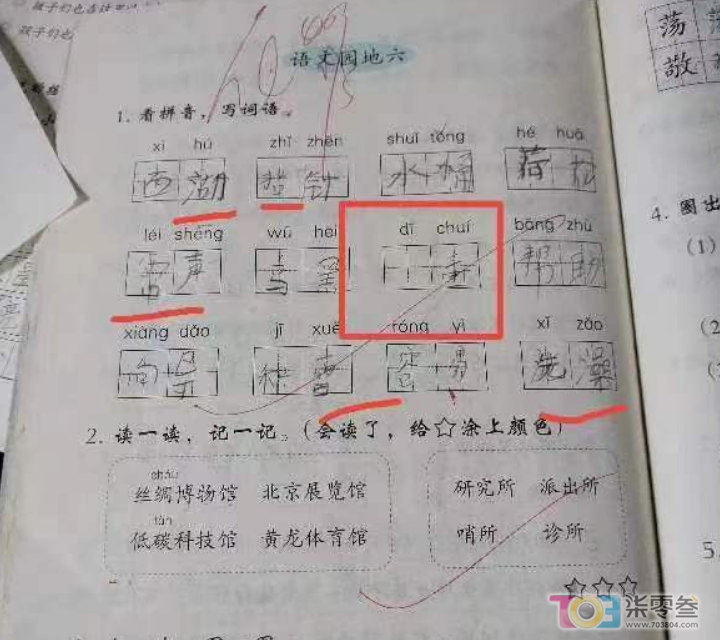 孩子们也
孩子们也
语文园地六
1. 看拼音，写词语。
xī hú zhǐ zhēn shuǐ tǒng hé huā
西湖 针 水桶 荷花
léi shēng wū hēi dī chuí bāng zhù
雷声 帮助
xiàng dǎo jī xuě róng yì xǐ zǎo
向导 积雪 容易 洗澡
2. 读一读，记一记。（会读了，给☆涂上颜色）
chóu
丝绸博物馆 北京展览馆
tàn
低碳科技馆 黄龙体育馆
研究所 派出所
哨所 诊所
☆☆☆
荡
敬
4. 圈出
(1)
(2
5.
703 柒零叁
www.703804.com